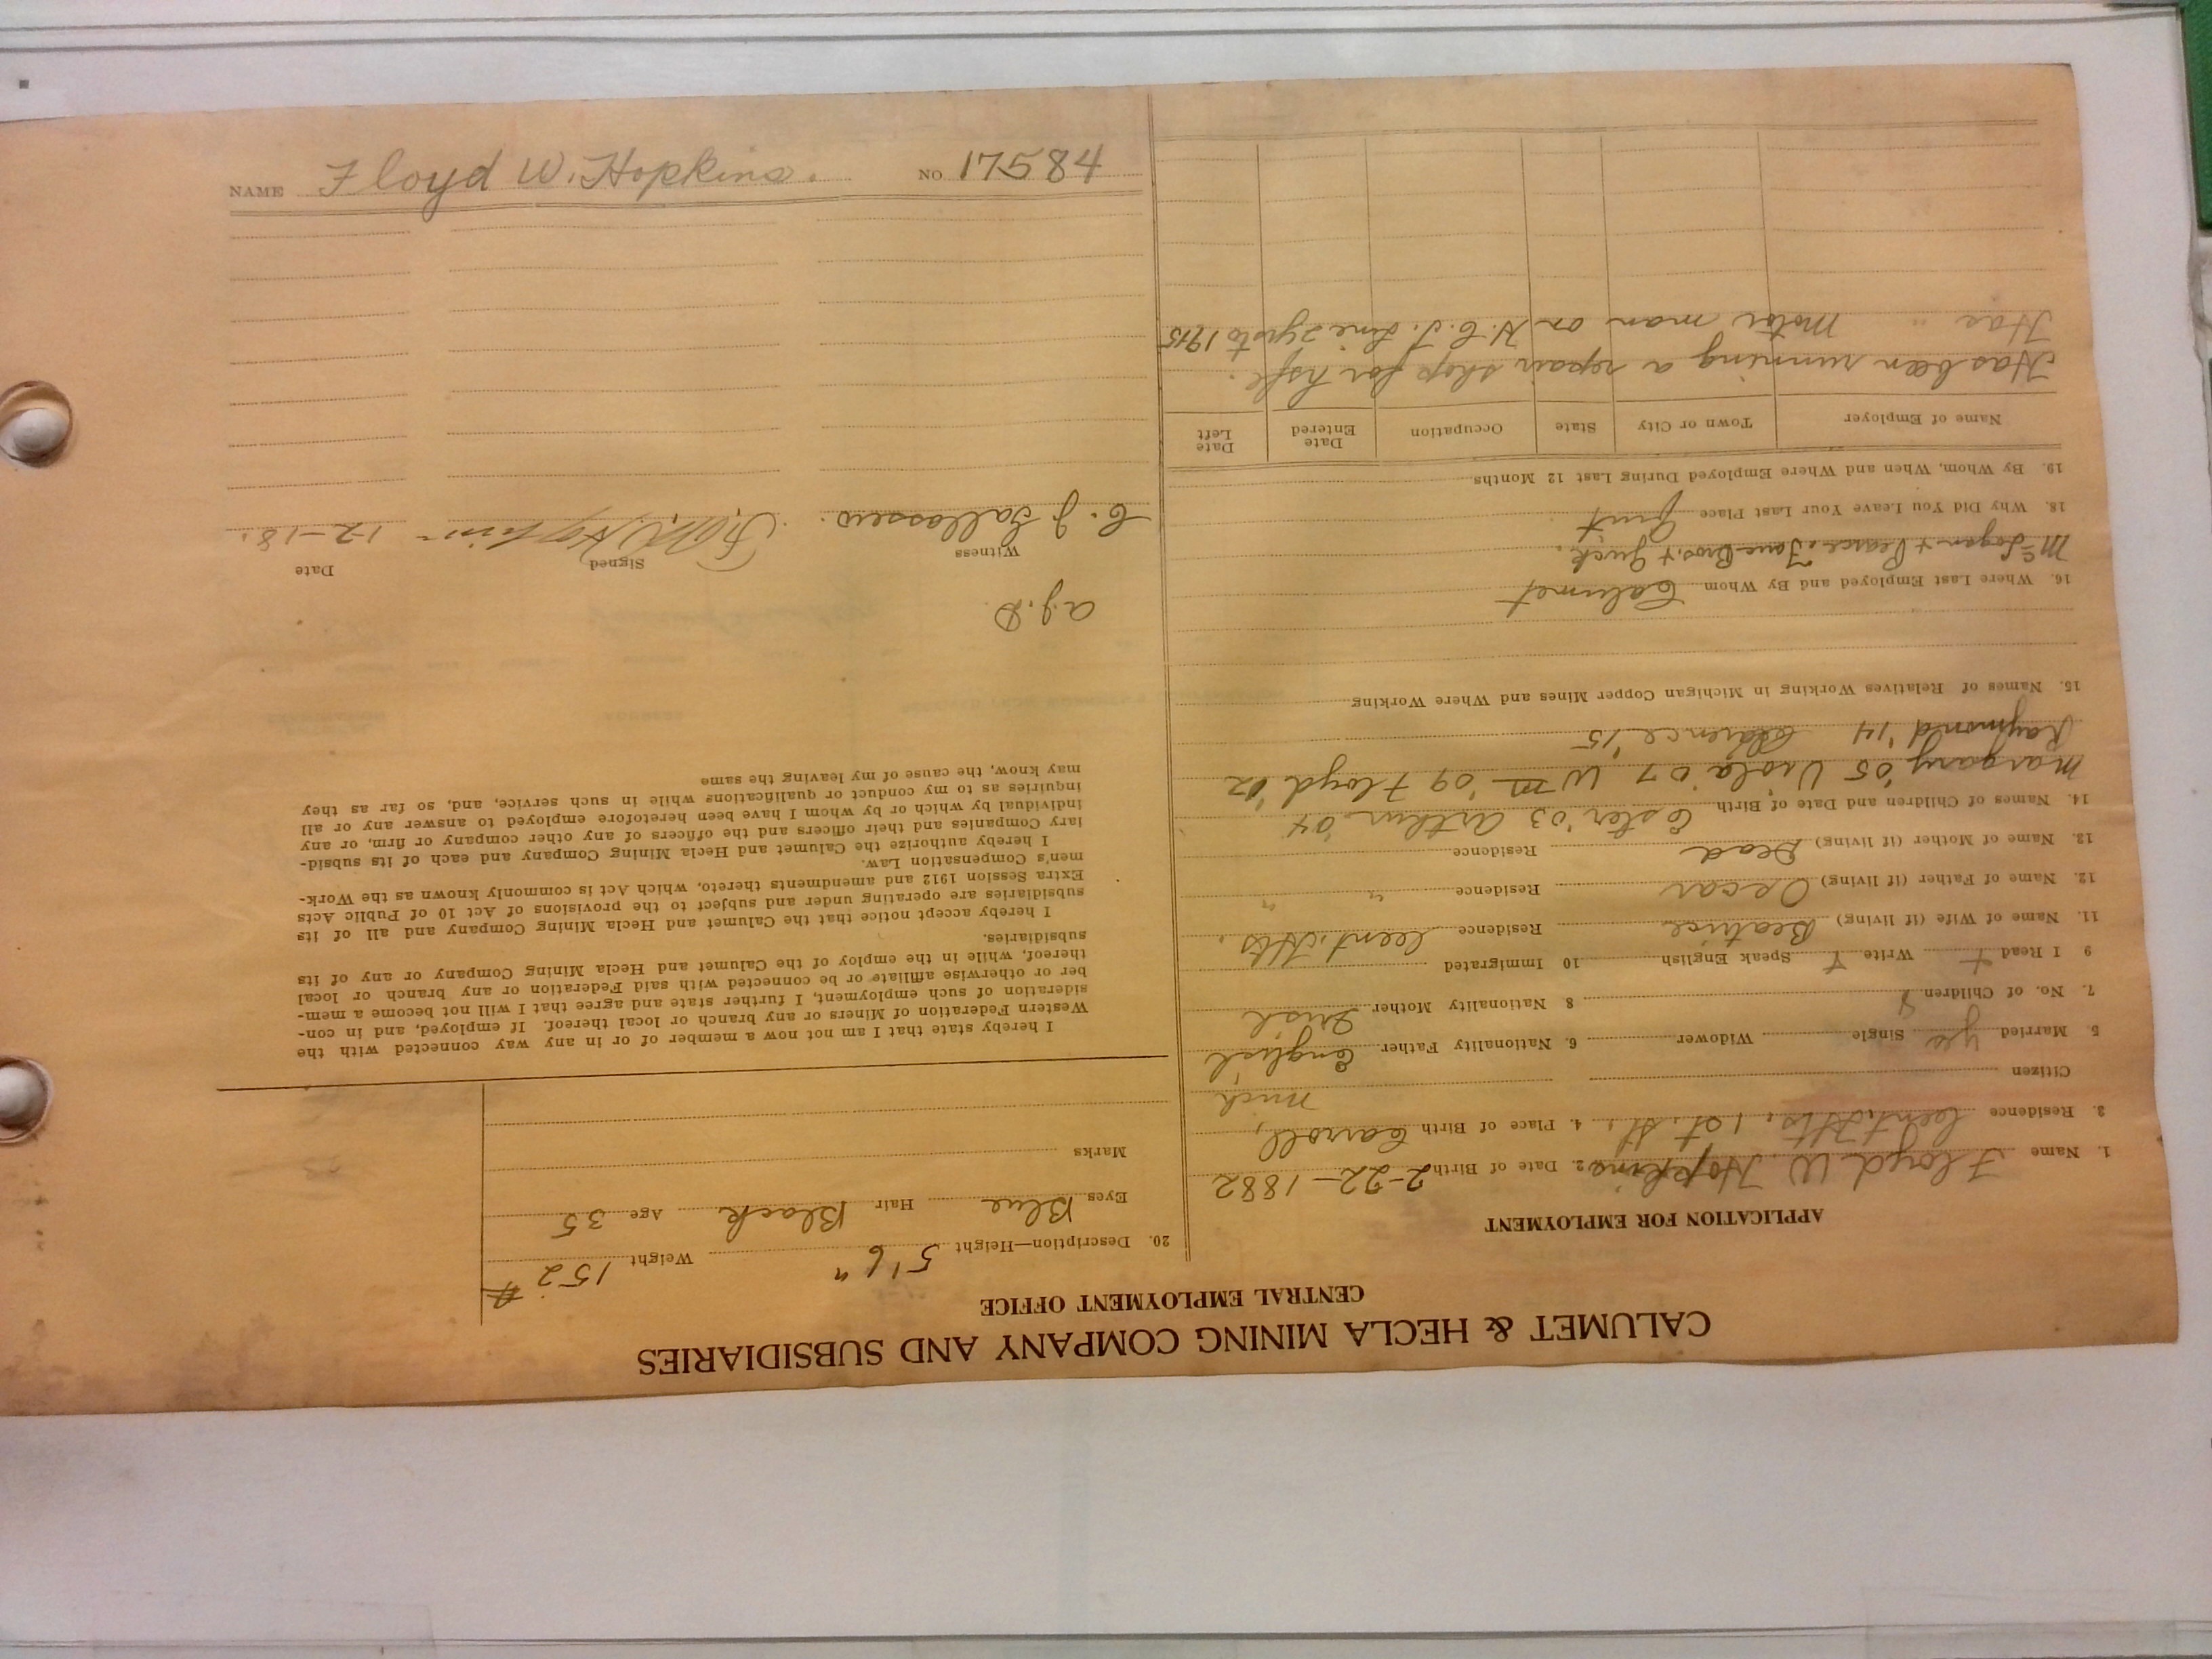 CALUMET & HECLA MINING COMPANY AND SUBSIDIARIES
CENTRAL EMPLOYMENT OFFICE
APPLICATION FOR EMPLOYMENT
1. Name Floyd W. Hopkins 2. Date of Birth 2-22-1882
3. Residence Cent. Hts. 1st. St. 4. Place of Birth Carroll,
Citizen Mich
5 Married yes Single Widower 6. Nationality Father English
7. No. of Children 8 8 Nationality Mother Irish
9 I Read + Write + Speak English 10 Immigrated
11. Name of Wife (if living) Beatrice Residence Cent. Hts.
12. Name of Father (if living) Oscar Residence " "
13. Name of Mother (if living) Dead Residence
14. Names of Children and Date of Birth Ester '03 Arthur '04
Margary '05 Viola '07 Wm '09 Floyd '02
Raymond '14 Clarence '15
15. Names of Relatives Working in Michigan Copper Mines and Where Working
16. Where Last Employed and By Whom Calumet
McLogan + Pearce, Jane Bros. + Quick.
18. Why Did You Leave Your Last Place Quit
19. By Whom, When and Where Employed During Last 12 Months
Name of Employer Town or City State Occupation Date Entered Date Left
Has been running a repair shop for hsfl.
Has " Motor man on H.C.T. Line 2 yrs to 1915
20. Description—Height 5'6" Weight 152 #
Eyes Blue Hair Black Age 35
Marks
I hereby state that I am not now a member of or in any way connected with the
Western Federation of Miners or any branch or local thereof. If employed, and in con-
sideration of such employment, I further state and agree that I will not become a mem-
ber or otherwise affiliate or be connected with said Federation or any branch or local
thereof, while in the employ of the Calumet and Hecla Mining Company or any of its
subsidiaries.
I hereby accept notice that the Calumet and Hecla Mining Company and all of its
subsidiaries are operating under and subject to the provisions of Act 10 of Public Acts
Extra Session 1912 and amendments thereto, which Act is commonly known as the Work-
men's Compensation Law.
I hereby authorize the Calumet and Hecla Mining Company and each of its subsid-
iary Companies and their officers and the officers of any other company or firm, or any
individual by which or by whom I have been heretofore employed to answer any or all
inquiries as to my conduct or qualifications while in such service, and, so far as they
may know, the cause of my leaving the same
a.g.D
Witness Signed Date
C. J. Hopkins 1-2-18.
NAME Floyd W. Hopkins. NO 17584